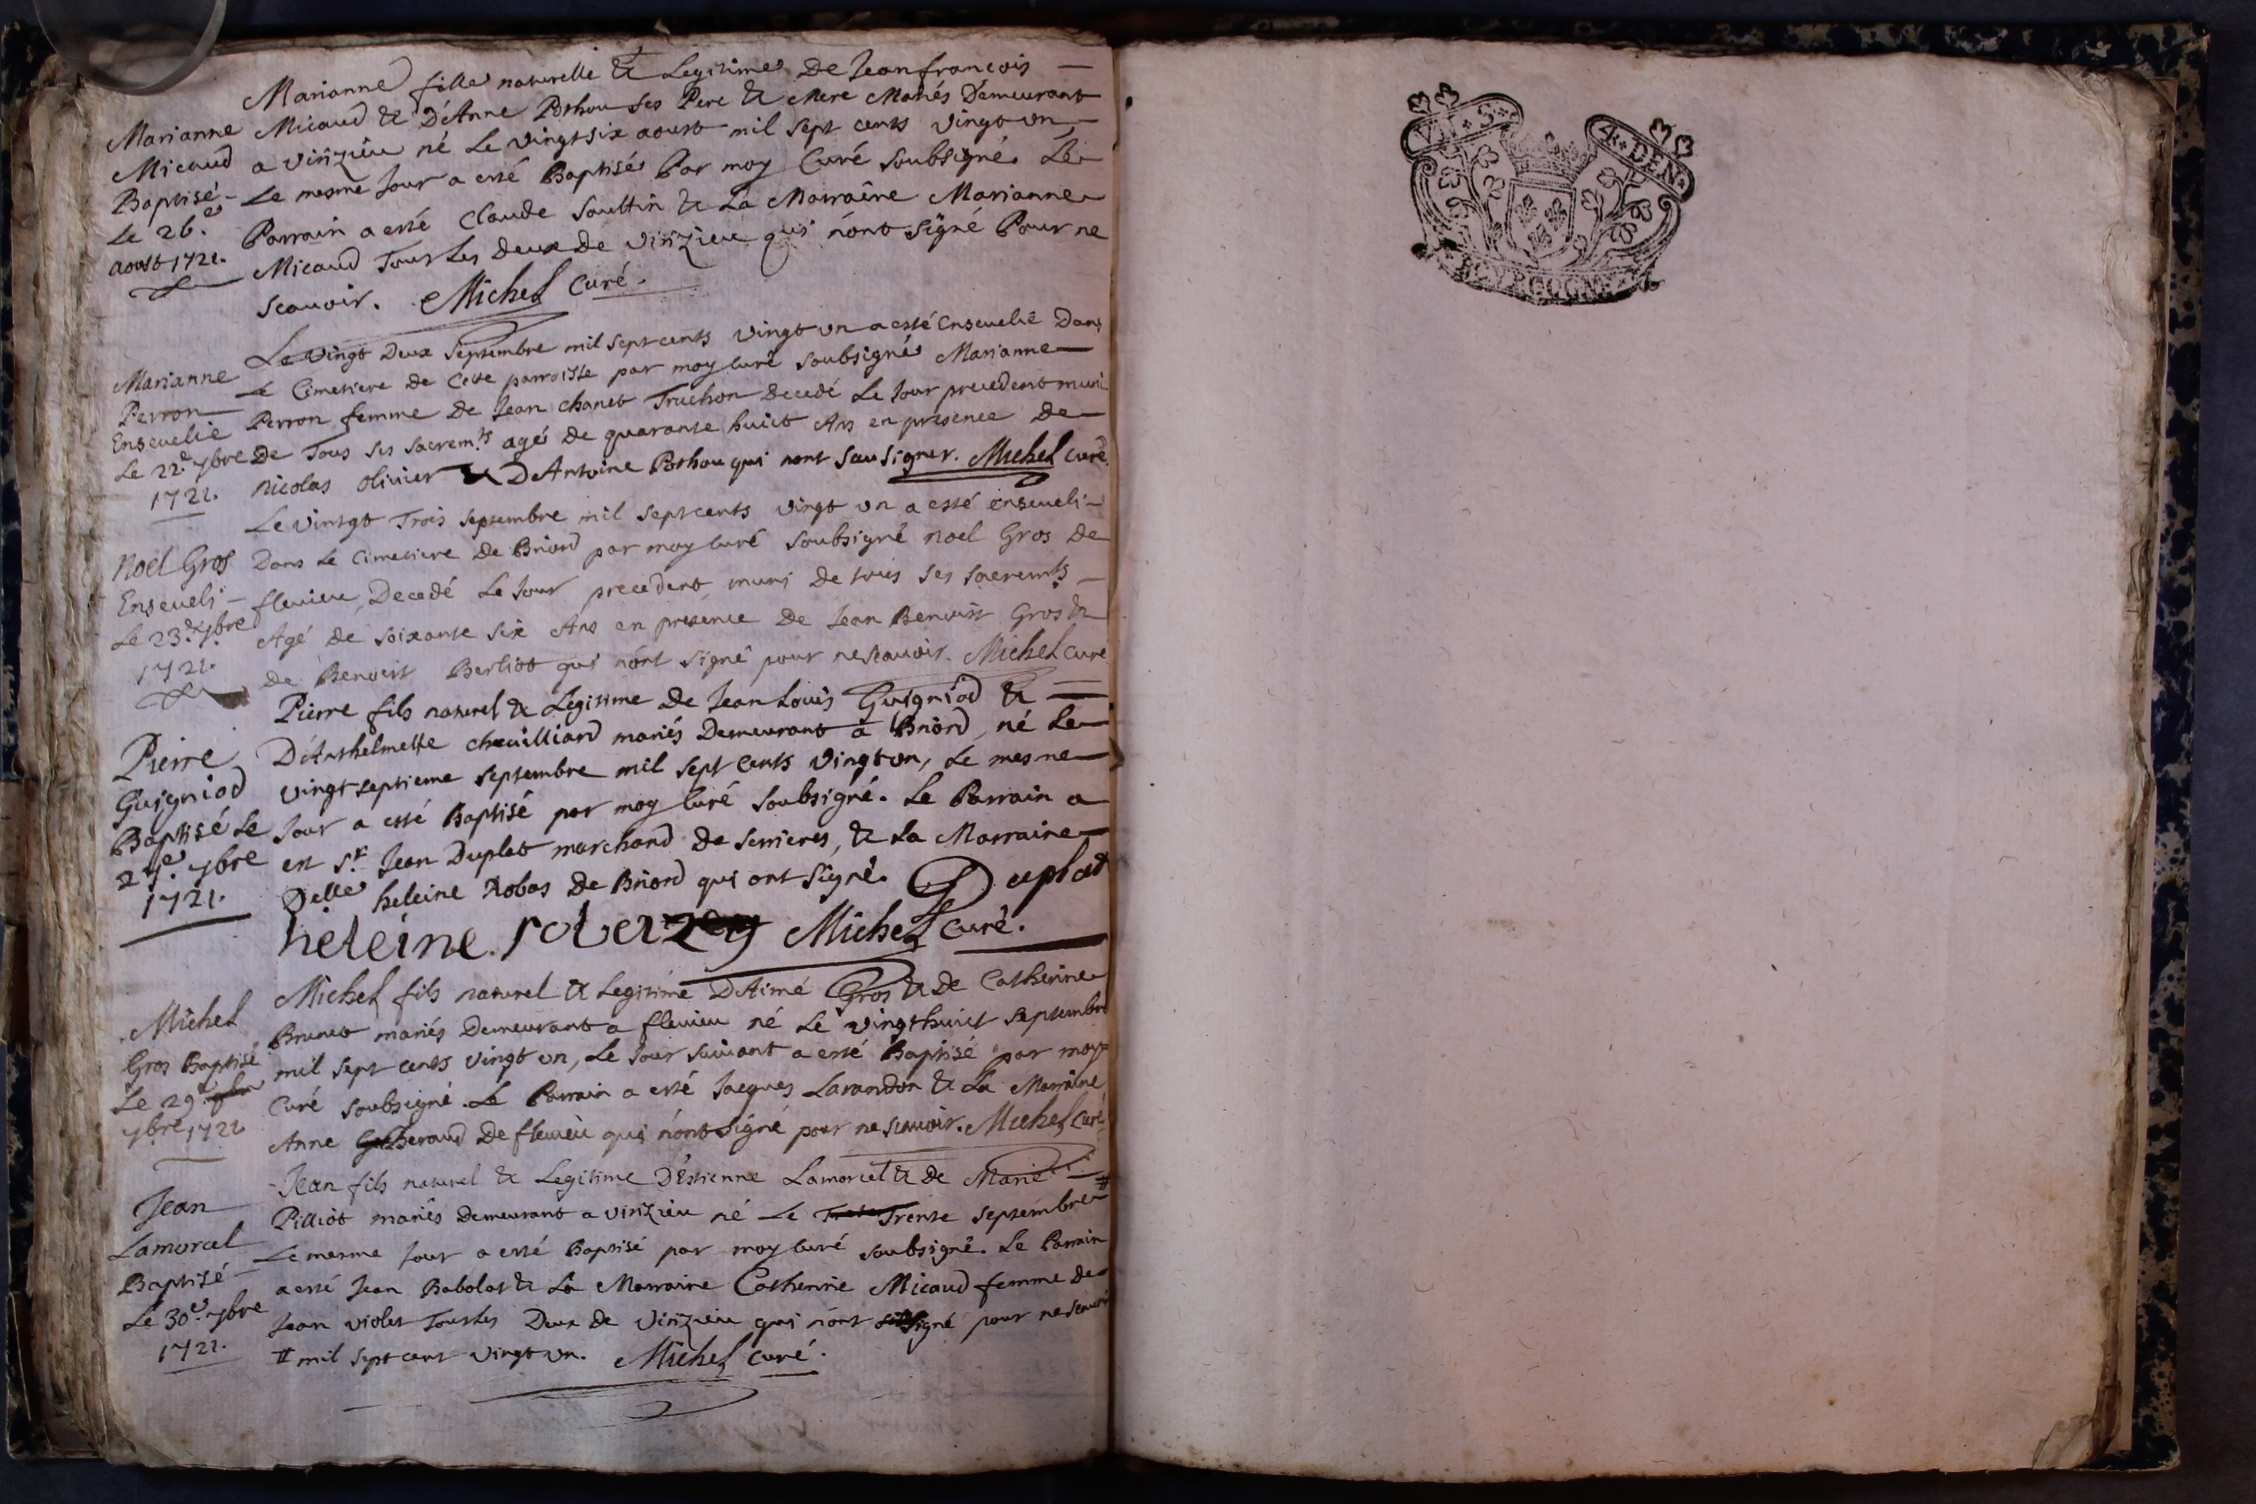 Marianne
Micaud
Baptisé -
Le 26.e
aoust 1721.
Marianne fille naturelle & Legitime De Jean francois
Micaud & D'Anne Pothou ses Pere & Mere Mariés Demeurant
a virizieu né Le vingt six aoust mil sept cents vingt un,
Le mesme Jour a esté Baptisé Par moy Curé soubsigné. Le
Parrain a esté Claude & La Marraine Marianne
Micaud Tous Les deux de virizieu qui n'ont signé Pour ne
scauoir. Michel Curé.
Marianne
Perron
Enseuelie
Le 22.e 7bre
1721.
Le vingt Deux Septembre mil sept cents vingt un a esté Enseuelie Dans
Le Cimetiere de Cette parroisse par moy Curé soubsigné Marianne
Perron femme de Jean chanet Truchon Decedé Le Jour precedent muni
De Tous ses sacrem.ts agé de quarante huict Ans en presence de
nicolas olivier & D'Antoine Pothou qui nont sau signer. Michel curé
Noël Gros
Enseueli -
Le 23.e 7bre
1721.
Le vintgt Trois Septembre mil sept cents vingt un a esté enseueli
Dans Le Cimetiere de Briord par moy Curé soubsigné noel Gros de
fleuieu Decedé Le Jour precedent, muni de tous ses sacremts
Agé de soixante six Ans en presence de Jean Benoist Gros &
de Benoist Berliot qui n'ont signé pour ne scauoir. Michel curé
Pierre
Guigniod
Baptisé Le
27.e 7bre
1721.
Pierre fils naturel & Legitime de Jean Louis Guigniod &
D'Anthelmette cheuilliard mariés Demeurant a Briord, né Le
vingt septieme septembre mil sept cents vingt un, Le mesme
Jour a esté Baptisé par moy Curé soubsigné. Le Parrain a
est S.r Jean Duplat marchand de serrieres, & La Marraine
Delle heleine Robas de Briord qui ont signé. Duplat
heleine Michel curé.
Michel
Gros Baptisé
Le 29.e
7bre 1721
Michel fils naturel & Legitime D'Aimé Gros & de Catherine
Brunet mariés Demeurant a fleuieu né Le vingt huict septembre
mil sept cents vingt un, Le Jour suiuant a esté Baptisé par moy
Curé soubsigné. Le Parrain a esté Jacques Larandon & La Marraine
Anne de fleuieu qui n'ont signé pour ne scauoir. Michel Curé
Jean
Lamorcel
Baptisé -
Le 30.e 7bre
1721.
Jean fils naturel & Legitime D'Estienne Lamorcel & de Marie
Pilliot mariés Demeurant a virizieu né Le Trente Septembre #
Le mesme Jour a esté Baptisé par moy Curé soubsigné. Le Parrain
a esté Jean Babolat & La Marraine Catherine Micaud femme de
Jean violet Tous Les Deux de virizieu qui n'ont signé pour ne scauoir
# mil sept cent vingt un. Michel curé.
VI * S *
4 * DEN *